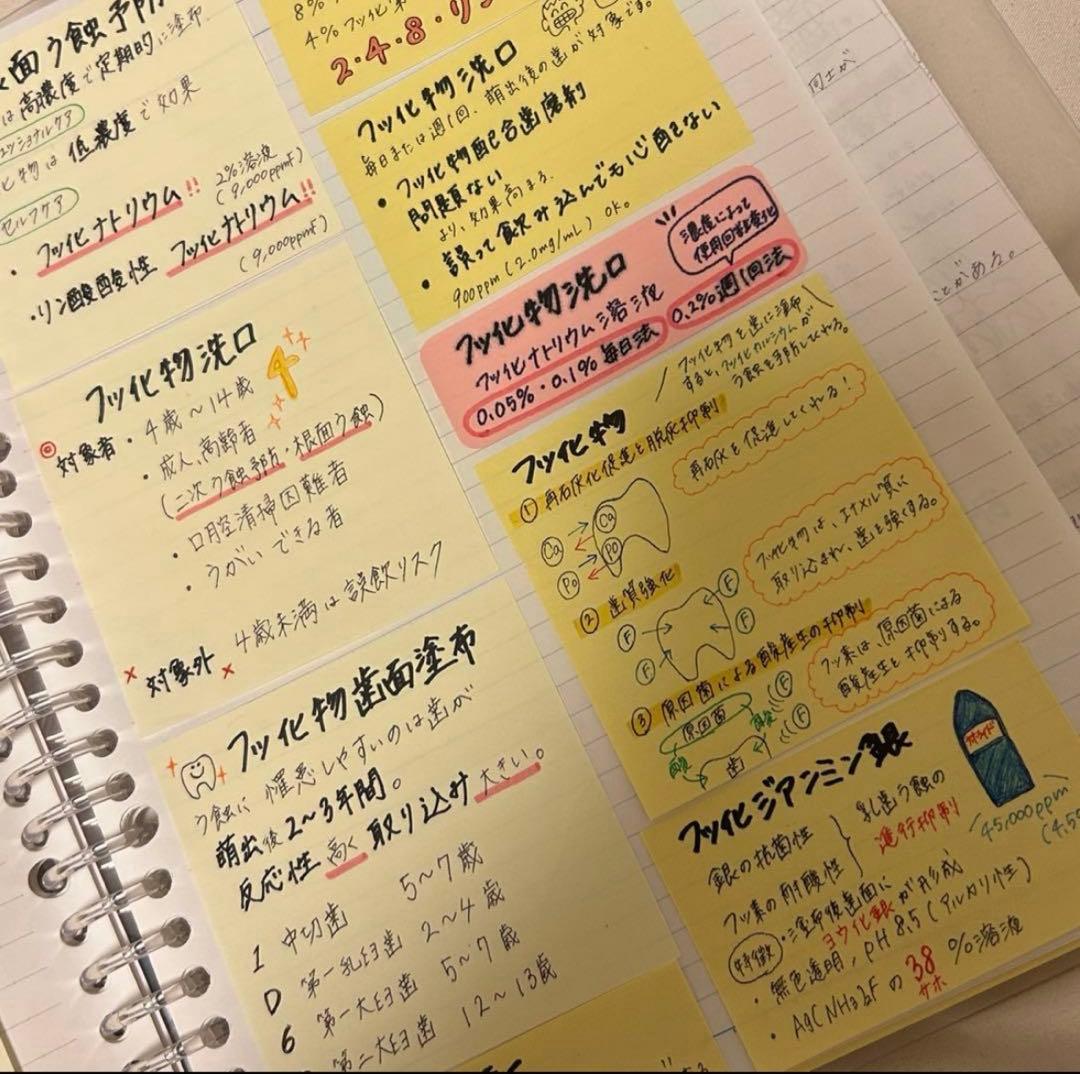 面う蝕予防
は高濃度で定期的に塗布。
化物は 低濃度で効果
セルフケア
・フッ化ナトリウム!! 2%溶液
(9,000ppmF)
・リン酸酸性 フッ化ナトリウム!!
(9,000ppmF)
フッ化物洗口
◎対象者・4歳～14歳
・成人、高齢者
(二次う蝕予防・根面う蝕)
・口腔清掃困難者
・うがいできる者
×対象外× 4歳未満は誤飲リスク
フッ化物歯面塗布
う蝕に罹患しやすいのは歯が
萌出後2～3年間。
反応性高く取り込み大きい。
1 中切歯 5～7歳
D 第一乳臼歯 2～4歳
6 第一大臼歯 5～7歳
第二大臼歯 12～13歳
8%
4%フッ化
2・4・8・リン
フッ化物洗口
毎日または週1回、萌出後の歯が対象です。
・フッ化物配合歯磨剤
問題ない
より、効果高まる。
・誤って飲み込んでも心配ない
900ppm(2.0mg/mL)OK。
フッ化物洗口
濃度によって
使用回数変化
フッ化ナトリウム溶液
0.05%・0.1%毎日法 0.2%週1回法
フッ化物
フッ化物を歯に塗布
すると、フッ化カルシウムが
う蝕を予防してくれる。
①再石灰化促進と脱灰抑制
再石灰を促進してくれる!
Ca
Ca
Po
Po
②歯質強化
フッ化物は、エナメル質に
取り込まれ、歯を強くする。
F
F
F
F
③原因菌による酸産生の抑制
フッ素は、原因菌による
酸産生を抑制する。
原因菌
酸
酸
F
F
歯
フッ化ジアンミン銀
サホライド
銀の抗菌性
フッ素の耐酸性
乳歯う蝕の
進行抑制
45,000ppm
特徴・塗布後歯面に
ヨウ化銀が形成
・無色透明、pH8.5(アルカリ性)
・Ag(NH3)2Fの38%溶液
サホ
同士が
とがある。